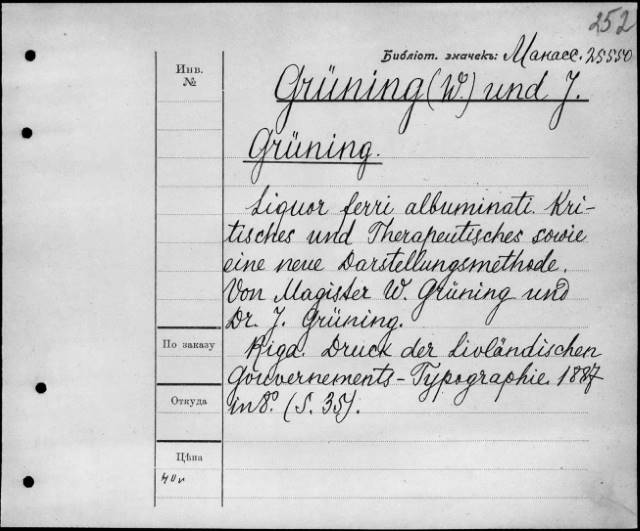 252
Библіот. значекъ: Манасс. 25550
Инв.
№
Grüning (W.) und J.
Grüning.
Liquor ferri albuminati. Kri-
tisches und Therapeutisches sowie
eine neue Darstellungsmethode.
Von Magister W. Grüning und
Dr. J. Grüning.
Riga. Druck der Livländischen
Gouvernements-Typographie. 1887
in 8°. (S. 35).
По заказу
Откуда
Цѣна